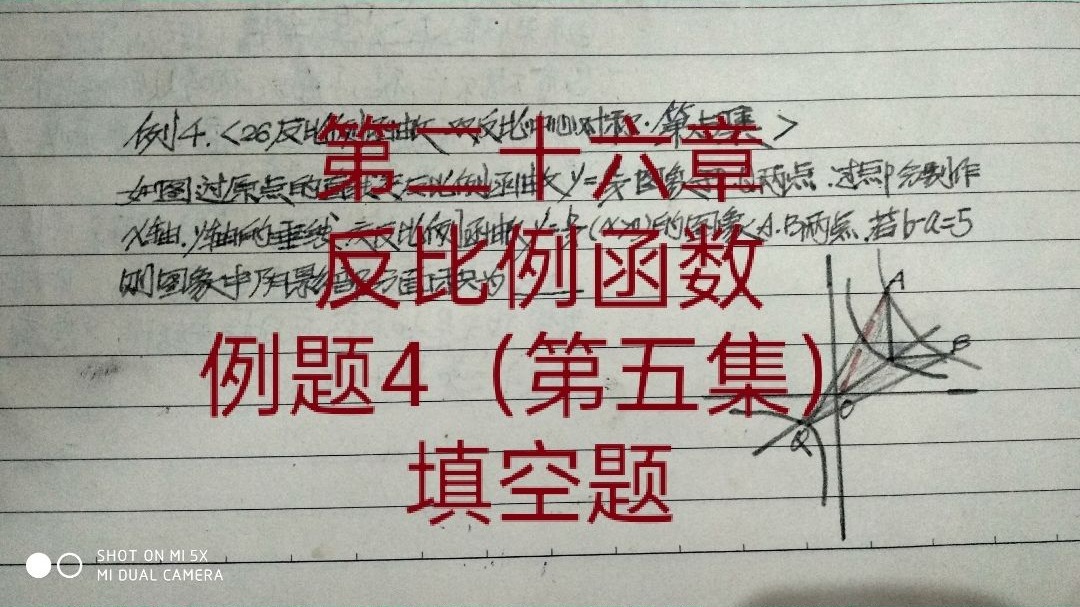 例4.<26反比例函数 双反比中心对称·第五集>
如图过原点的直线 反比例函数y= 图象 两点.过点P分别作
x轴.y轴的垂线.交反比例函数y= (x>0)的图象 A.B两点.若b-a=5
则图象中 为
第二十六章
反比例函数
例题4（第五集）
填空题
A
B
O
Q
SHOT ON MI 5X
MI DUAL CAMERA